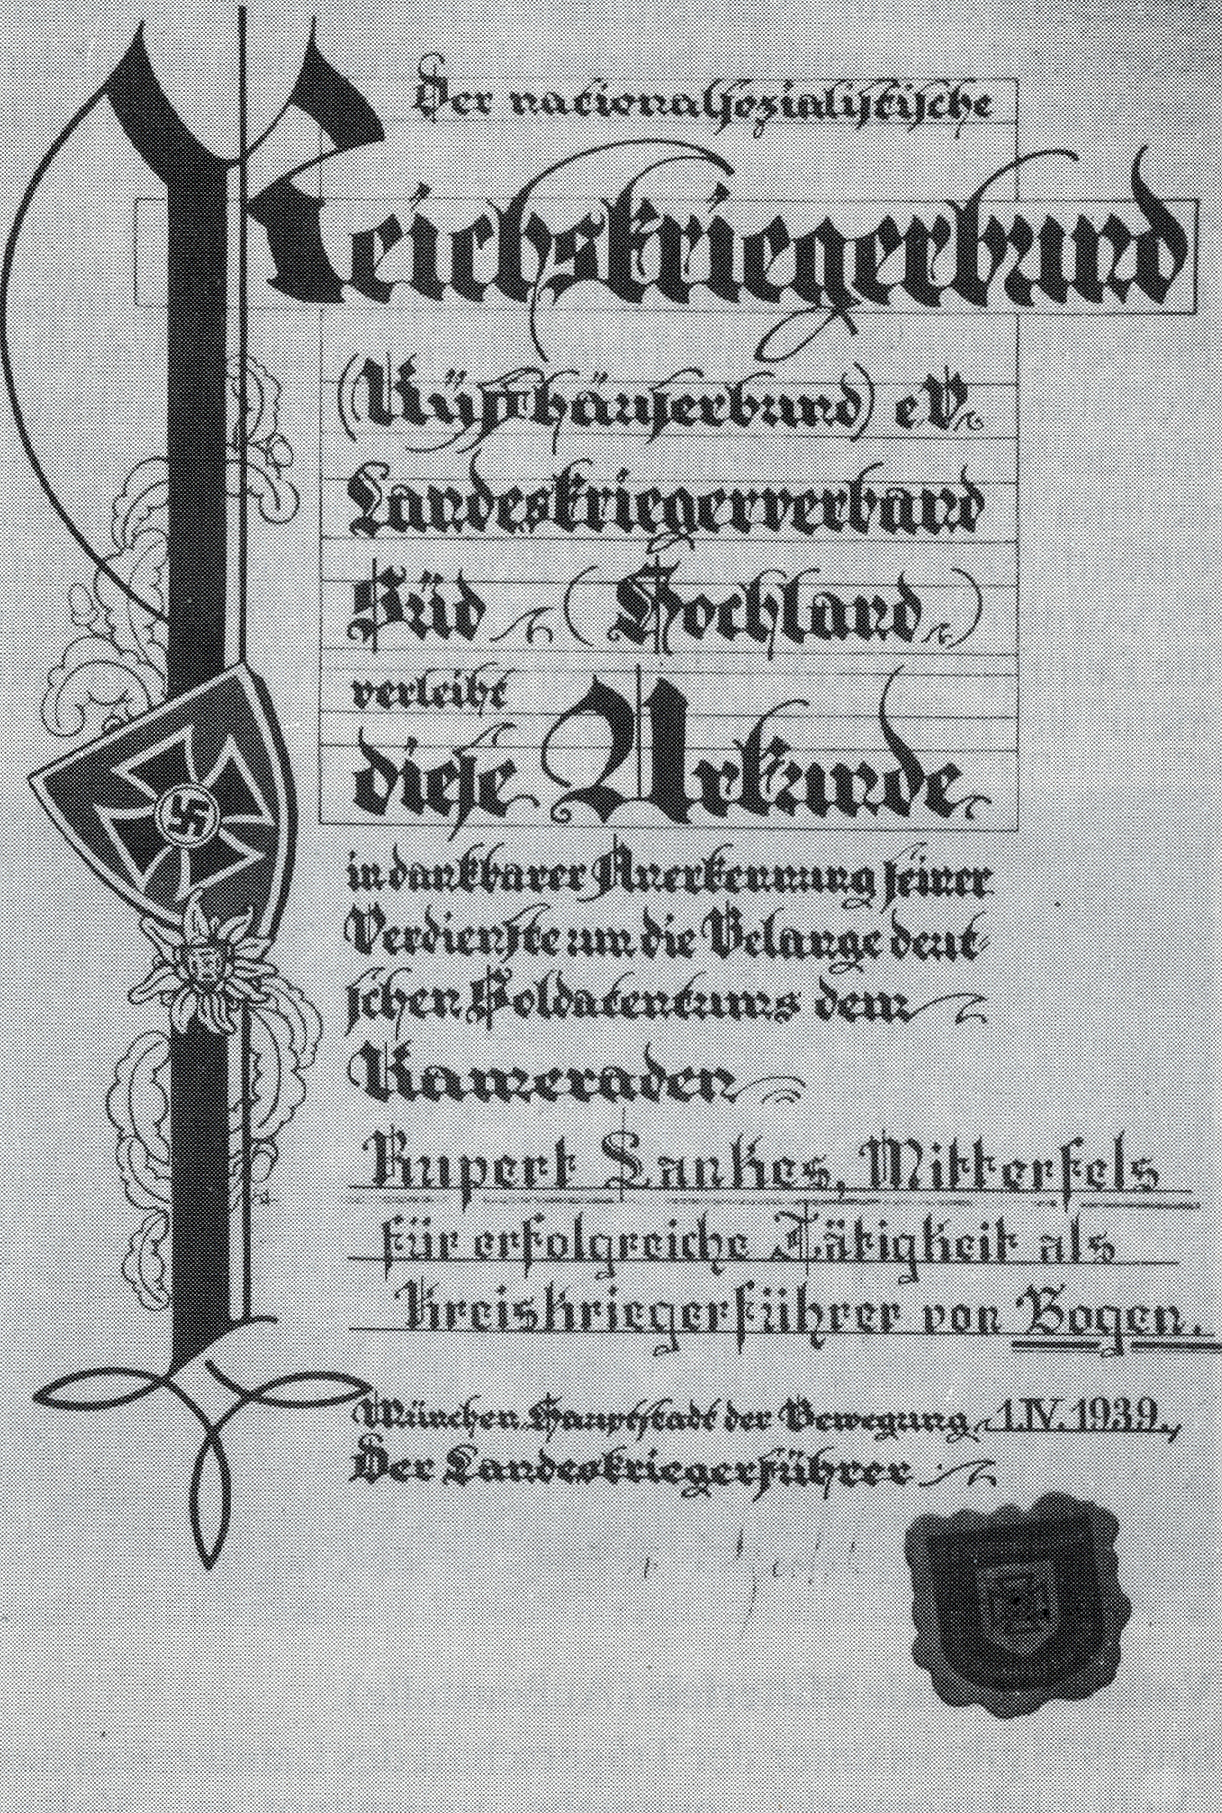 Der nationalsozialistische
Reichskriegerbund
(Kyffhäuserbund) e.V.
Landeskriegerverband
Süd (Hochland)
verleiht
diese Urkunde
in dankbarer Anerkennung seiner
Verdienste um die Belange deut-
schen Soldatentums dem
Kameraden
Rupert Lankes, Mitterfels
für erfolgreiche Tätigkeit als
Kreiskriegerführer von Bogen.
München, Hauptstadt der Bewegung, 1.IV.1939.
Der Landeskriegerführer